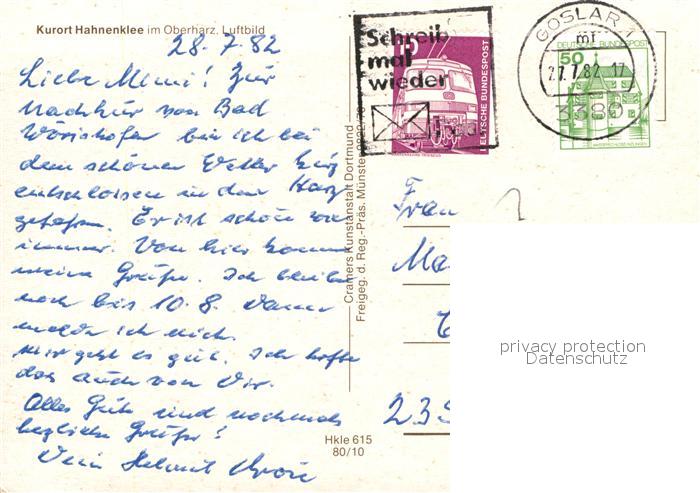 Kurort Hahnenklee im Oberharz. Luftbild
28.7.82
Liebe Mimi! Zur
Nachkur von Bad
Wörishofen bin ich bei
dem schönen Wetter kurz
entschlossen in den Harz
gefahren. Er ist schön wie
immer. Von hier kommen
meine Grüße. Ich bleibe
noch bis 10.8. Dann
melde ich mich.
Mir geht es gut. Ich hoffe
das auch von Dir.
Alles Gute und nochmals
herzliche Grüße!
Dein Helmut
Cramers Kunstanstalt Dortmund
Freigeg. d. Reg.-Präs. Münster
Hkle 615
80/10
Schreib
mal
wieder
DEUTSCHE BUNDESPOST
GOSLAR 1
mr
27.7.82 17
3380
DEUTSCHE BUNDESPOST
50
Frau
Ma
235
privacy protection
Datenschutz